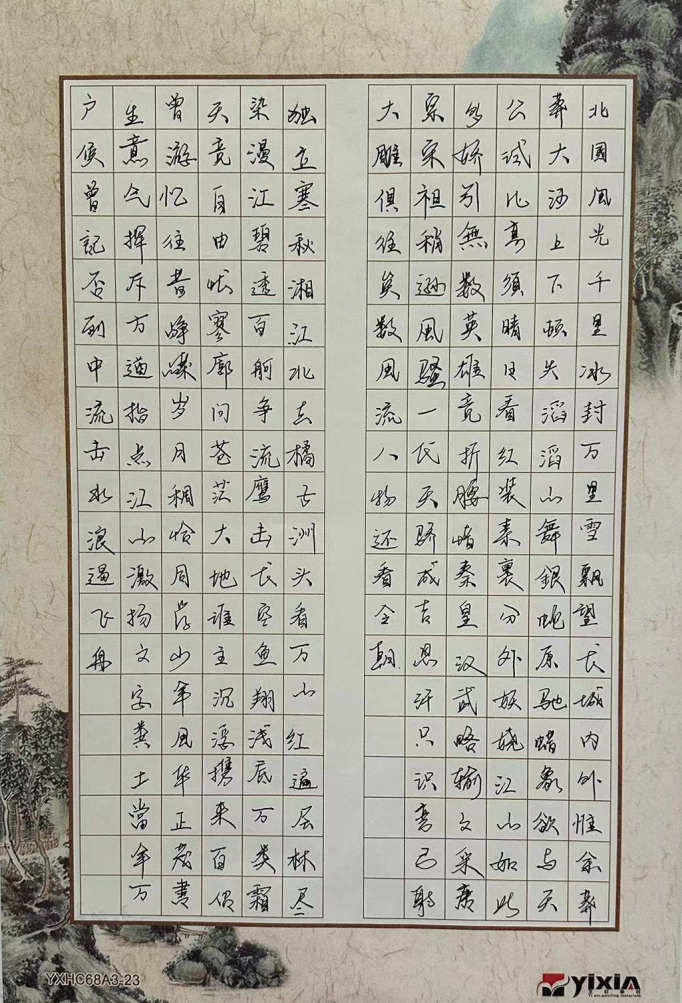 北國風光千里冰封万里雪飘望长城内外惟余莽
莽大河上下顿失滔滔山舞銀蛇原馳蜡象欲与天
公試比高須晴日看红装素裹分外妖娆江山如此
多娇引無数英雄竞折腰惜秦皇汉武略输文采唐
宗宋祖稍逊風騷一代天骄成吉思汗只识弯弓射
大雕俱往矣数風流人物还看今朝
独立寒秋湘江北去橘子洲头看万山红遍层林尽
染漫江碧透百舸争流鹰击长空鱼翔浅底万类霜
天竞自由怅寥廓问苍茫大地谁主沉浮携来百侣
曾游忆往昔峥嵘岁月稠恰同学少年風华正茂書
生意气挥斥方遒指点江山激扬文字粪土當年万
户侯曾記否到中流击水浪遏飞舟
YXHC68A3-23
YIXIA
Yi xin painting materials